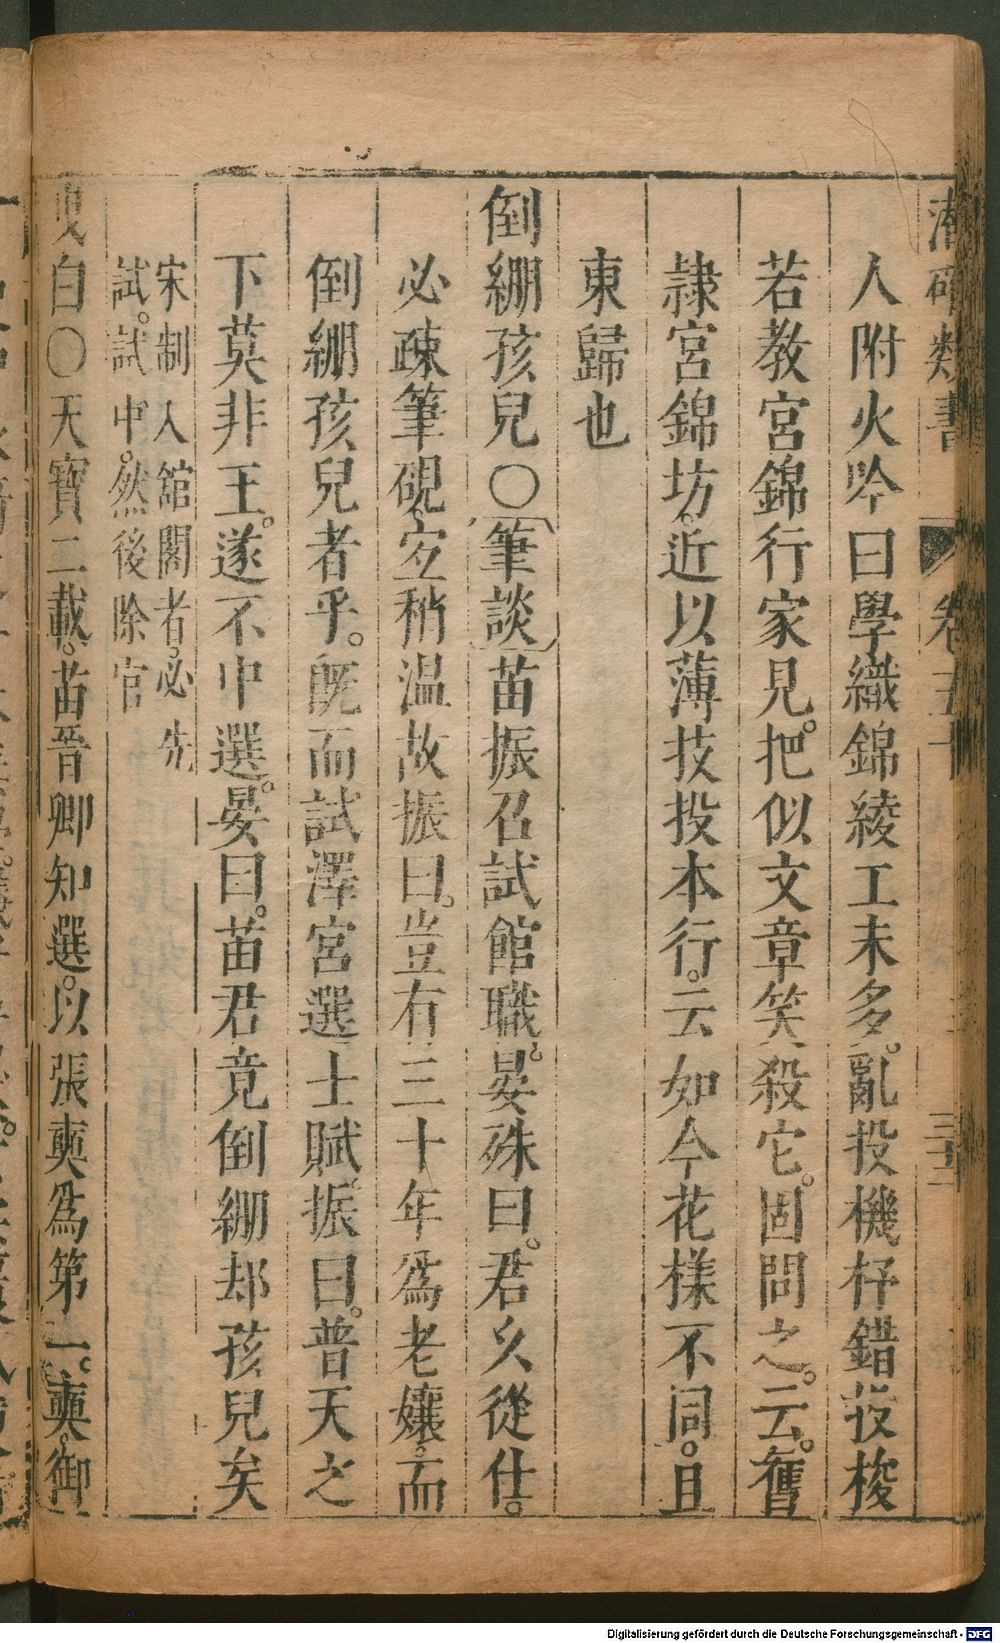 潛確類書 卷五十 三十二
人附火吟曰學織錦綾工未多。亂投機杼錯投梭
若教宮錦行家見。把似文章笑殺它。固問之。云。舊
隷宮錦坊。近以薄技投本行。云如今花樣不同。且
東歸也
倒綳孩兒〇筆談苗振召試館職。晏殊曰。君久從仕。
必疎筆硯。宐稍温故振曰。豈有三十年爲老孃。而
倒綳孩兒者乎。旣而試澤宮選士賦。振曰。普天之
下莫非王。遂不中選。晏曰。苗君竟倒綳却孩兒矣
宋制入舘閣者。必先
試。試中。然後除官
曳白〇天寶二載。苗晉卿知選。以張奭爲第一。奭。御
Digitalisierung gefördert durch die Deutsche Forschungsgemeinschaft - DFG